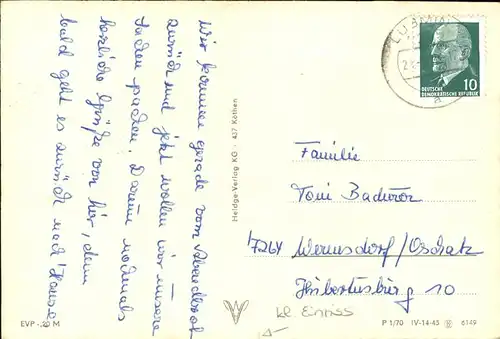 Wir kommen gerade vom
zurück und jetzt wollen wir unsere
Sachen packen. Darum nochmals
herzliche Grüße von hier, denn
bald geht es zurück nach Hause
LUBMIN
DEUTSCHE
DEMOKRATISCHE REPUBLIK 10
Heldge Verlag KG · 437 Köthen
Familie
Toni
7264 Wermsdorf/Oschatz
Hubertusburg 10
kl Einriss
EVP -.20 M
P 1/70 IV-14-45 6149